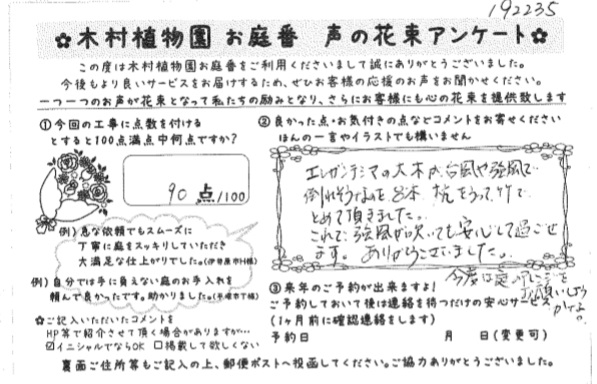 192235
✿木村植物園 お庭番 声の花束アンケート✿
この度は木村植物園お庭番をご利用くださいまして誠にありがとうございました。
今後もより良いサービスをお届けするため、ぜひお客様の応援のお声をお聞かせください。
一つ一つのお声が花束となって私たちの励みとなり、さらにお客様にも心の花束を提供致します
①今回の工事に点数を付ける
とすると100点満点中何点ですか?
90 点/100
例)急な依頼でもスムーズに
丁寧に庭をスッキリしていただき
大満足な仕上がりでした。(伊勢原市H様)
例)自分では手に負えない庭のお手入れを
頼んで良かったです。助かりました。(平塚市T様)
✿ご記入いただいたコメントを
HP等で紹介させて頂く場合がありますが…
☑イニシャルでならOK □掲載して欲しくない
②良かった点・お気付きの点などコメントをお寄せください
ほんの一言やイラストでも構いません
エレガンテシマの大木が、台風や強風で
倒れそうなのを 8本 杭をうって、竹で
とめて頂きました。
これで、強風が吹いても安心して過ごせ
ます。ありがとうございました。
今度は
③来年のご予約が出来ますよ!
ご予約しておいて後は連絡を待つだけの安心サービス
(1ヶ月前に確認連絡をします)
予約日 月 日(変更可)
裏面ご住所等もご記入の上、郵便ポストへ投函してください。ご協力ありがとうございました。